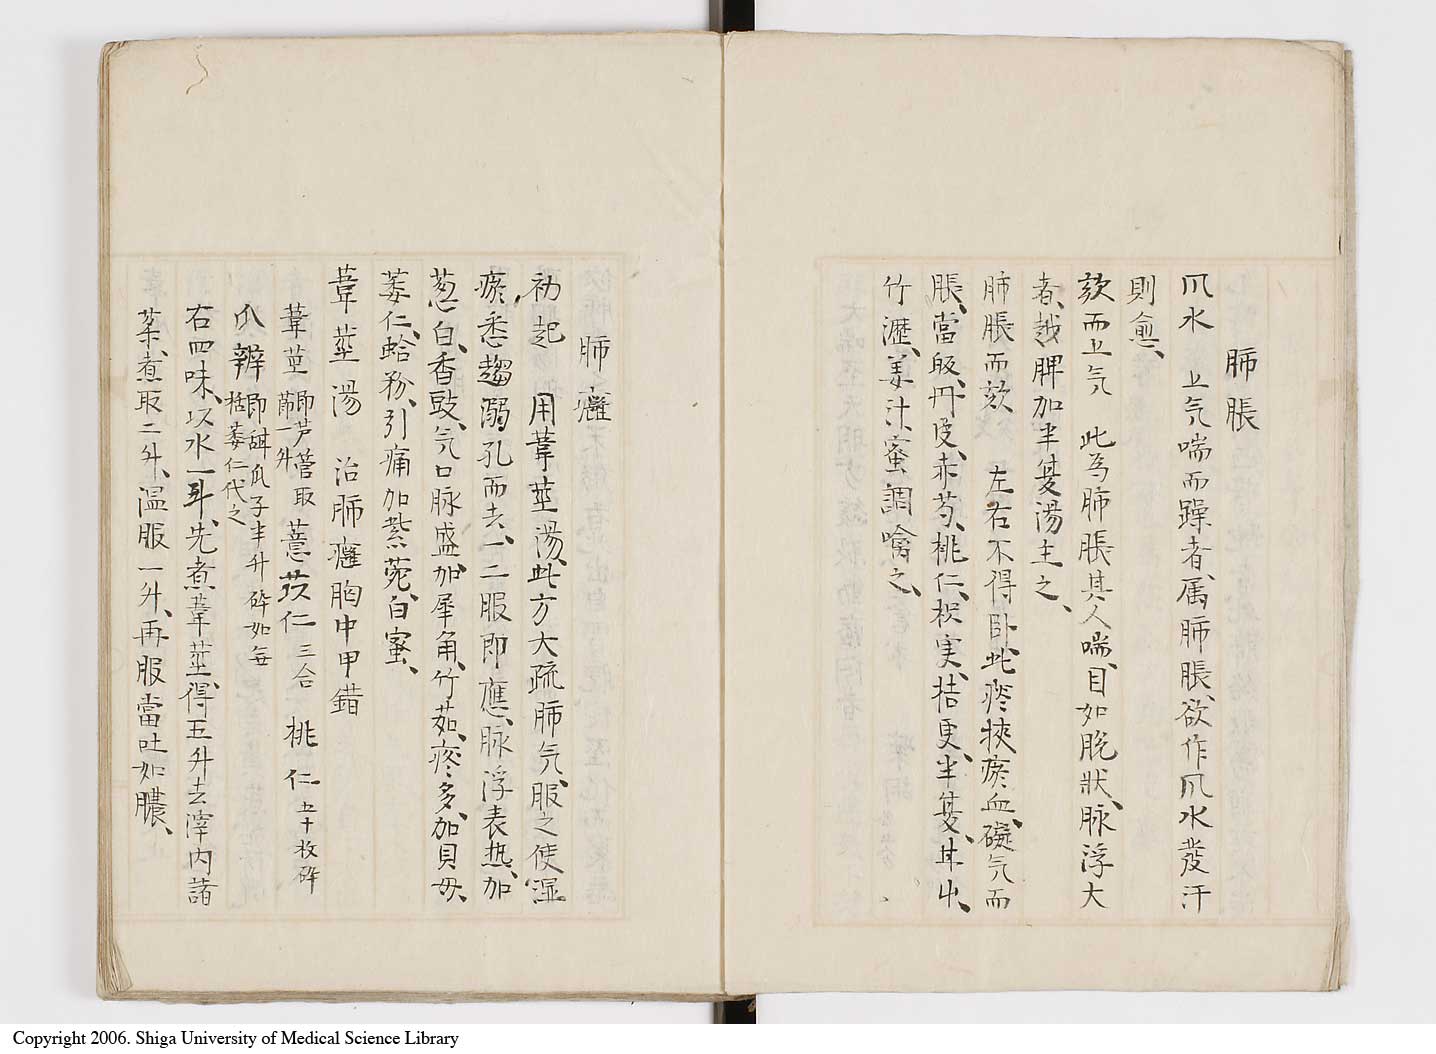 肺脹
风水　上气喘而躁者、属肺脹、欲作风水發汗
則愈、
欬而上气　此为肺脹其人喘、目如脱狀、脉浮大
者、越脾加半夏湯主之、
肺脹而欬　左右不得卧、此痰挾瘀血、礙气而
脹、當皈、丹皮、赤芍、桃仁、枳実、桔更、半夏、甘艸、
竹瀝、姜汁、蜜調噙之、
肺癰
初起　用葦莖湯、此方大疏肺气、服之使湿
瘀、悉趨溺孔而去、一二服即應、脉浮表热、加
葱白、香豉、气口脉盛、加犀角、竹茹、痰多、加貝母、
蔞仁、蛤粉、引痛加紫菀、白蜜、
葦莖湯　治肺癰胸中甲錯
葦莖即芦管取一升　薏苡仁三合　桃仁五十枚碎
瓜辨即甜瓜子半升碎如每栝蔞仁代之
右四味、以水一斗、先煮葦莖、得五升去滓内諸
薬、煮取二升、温服一升、再服當吐如膿、
Copyright 2006. Shiga University of Medical Science Library